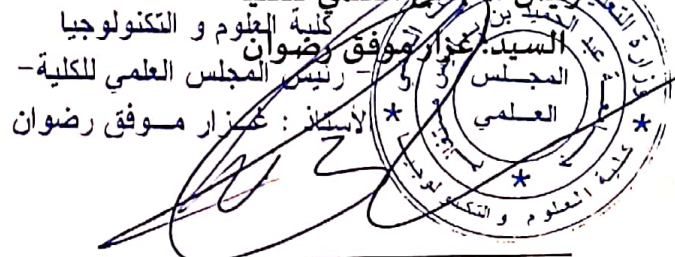 كلية العلوم و التكنولوجيا
السيد: غزار موفق رضوان
- رئيس المجلس العلمي للكلية-
الأستاذ : غزار موفق رضوان
المجلس
العلمي
كلية العلوم و التكنولوجيا